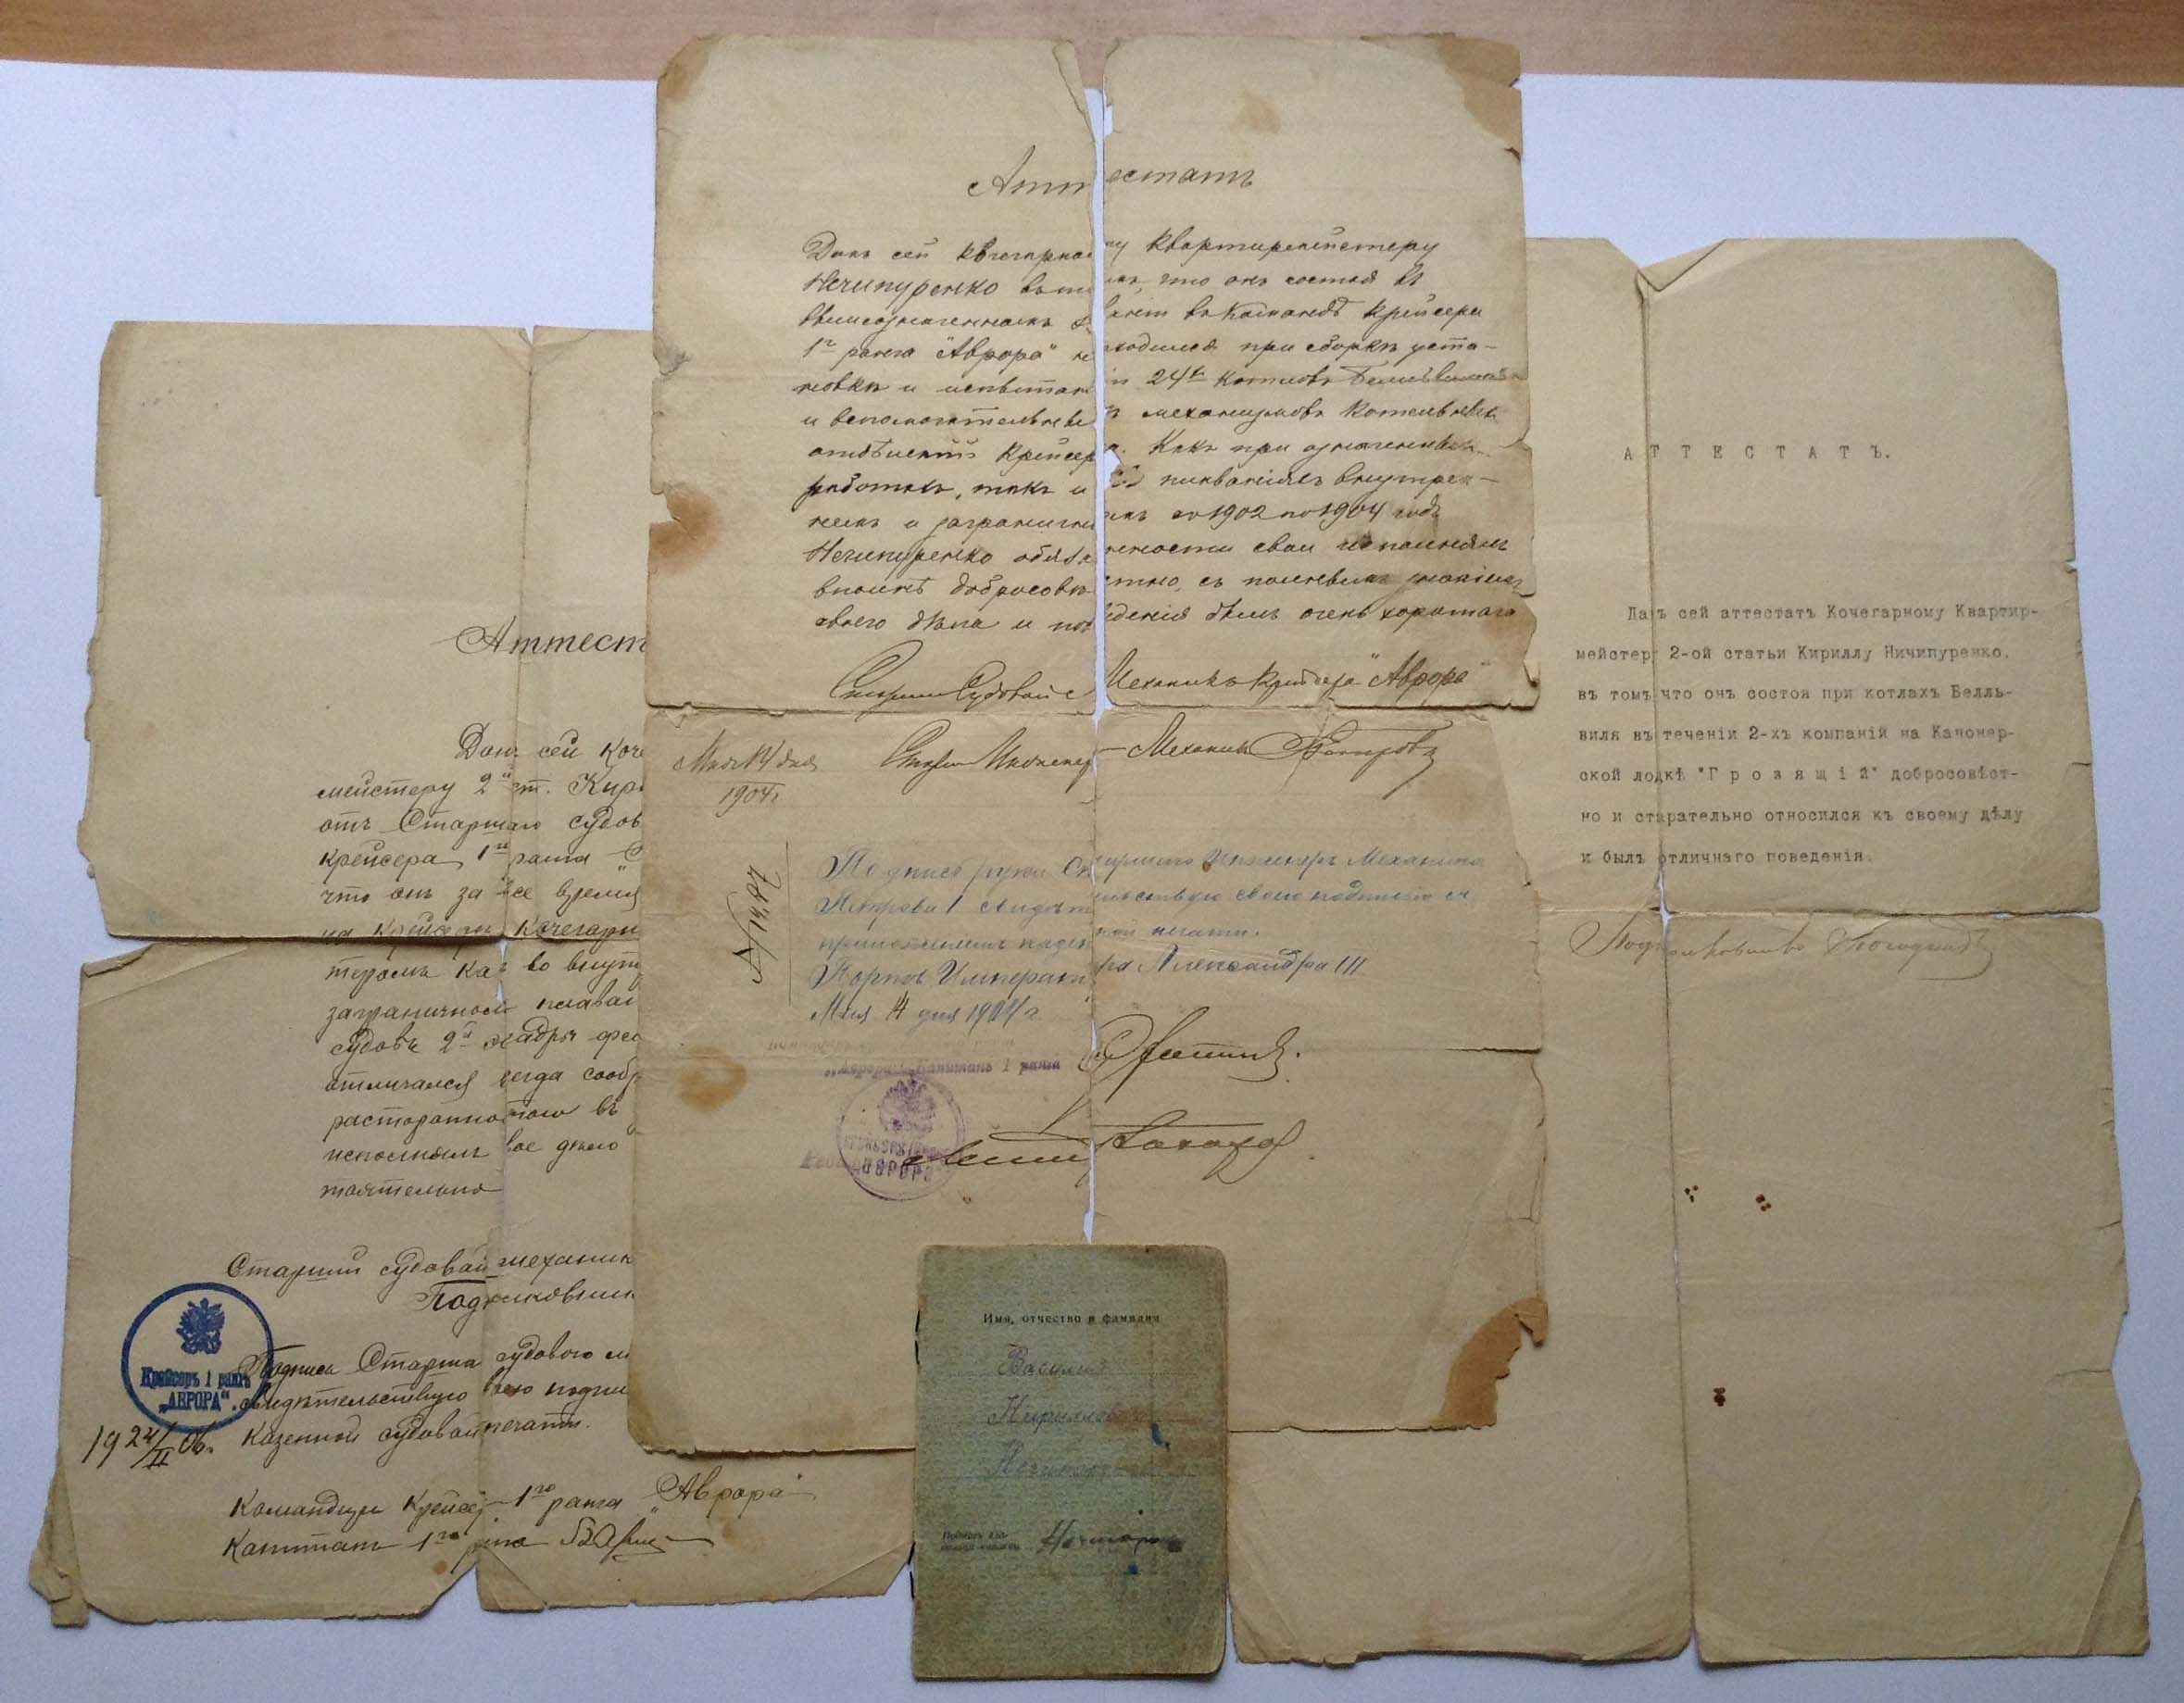 Аттестатъ
Данъ сей Кочегарному Квартирмейстеру
Нечипуренко въ томъ, что онъ состоя въ
въ Командѣ Крейсера
1го ранга "Аврора" находился при сборкѣ уста-
новкѣ и испытаніи 24хъ Котловъ Бельвиля
и вспомогательныхъ механизмовъ Котельныхъ
отдѣленій Крейсера. Какъ при означенныхъ
работахъ, такъ и плаваніяхъ внутрен-
нихъ и заграничныхъ съ 1902 по 1904 годъ
Нечипуренко обязанности свои исполнялъ
вполнѣ добросовѣстно, съ полнымъ знаніемъ
своего дѣла и поведенія былъ очень хорошаго
Старшій Судовой Механикъ Крейсера "Аврора"
Старш Инженеръ-Механикъ Петровъ
Мая 14 дня
1904 г
Подпись руки Старшаго Инженеръ Механика
Петрова 1 свидѣтельствую своею подписью съ
приложеніемъ казенной печати.
Портъ Императора Александра III
Мая 14 дня 1904 г.
№ 1247
„Аврора“ Капитанъ 1 ранга
АВРОРА
Аттест
Данъ сей Коче
мейстеру 2й ст. Кири
отъ Старшаго судов
крейсера 1го ранга
что онъ за все время
на Крейсерѣ Кочегарн
теромъ какъ во внутр
заграничномъ плаван
судовъ 2й эскадры
отличался всегда сообр
расторопностью въ
исполнялъ свое дѣло
тоятельно
Старшій судовой механик
Подполковник
Крейсеръ 1 ранга
„АВРОРА“.
Подпись Старша судового м
свидѣтельствую своею подпи
казенной судовой печати.
19 24/II 06 г.
Командиръ Крейсера 1го ранга "Аврора"
Капитанъ 1го ранга
АТТЕСТАТЪ.
Данъ сей аттестатъ Кочегарному Квартир-
мейстеру 2-ой статьи Кириллу Ничипуренко,
въ томъ что онъ состоя при котлахъ Белль-
виля въ теченіи 2-хъ компаній на Канонер-
ской лодкѣ "Грозящій" добросовѣст-
но и старательно относился къ своему дѣлу
и былъ отличнаго поведенія.
Подполковникъ
Имя, отчество и фамилия
Василий
Кириллович